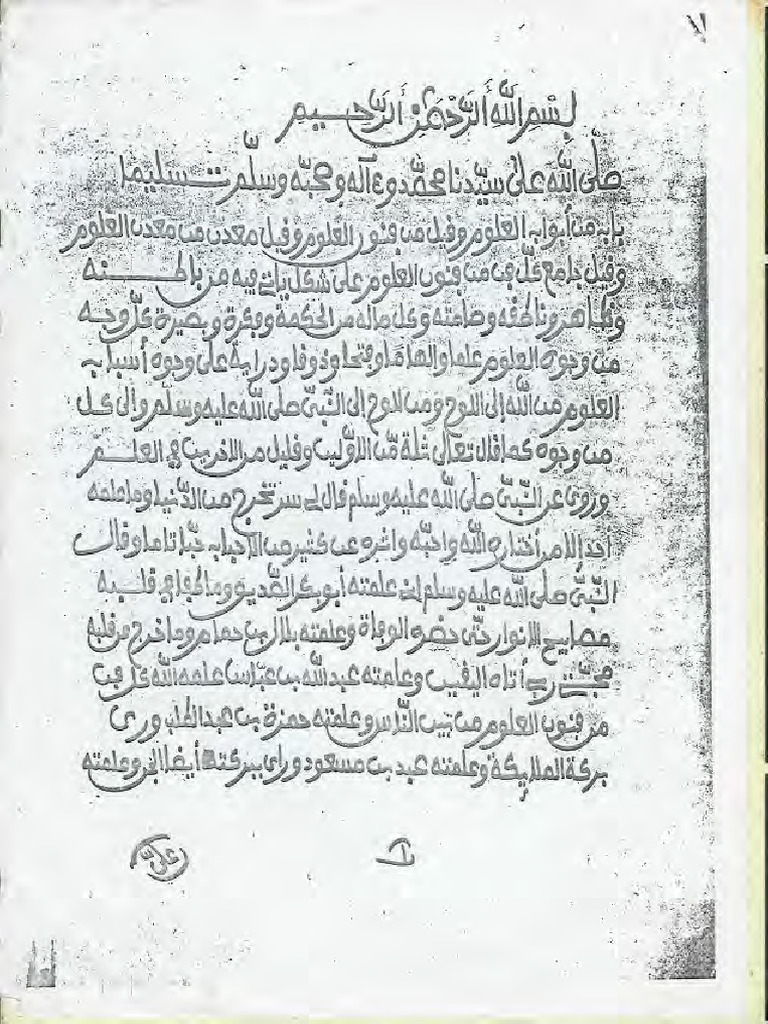 بِسْمِ اللَّهِ الرَّحْمَنِ الرَّحِيمِ
صلى الله على سيدنا محمد وءاله وصحبه وسلم تسليما
بابه من أبوابه العلوم وقيل من فنون العلوم وقيل معدن من معدن العلوم
وقيل جامع كل فن من فنون العلوم على شكل ياتي فيه من باطنه
وظاهر وناطفه وصامته وكل ماله من الحكمة وفكرة وبصيرة كل وجه
من وجوه العلوم علما والهاما وفتحا وذوقا ودراية على وجوه أسبابه
العلوم من الله إلى اللوح ومن اللوح إلى النبي صلى الله عليه وسلم وإلى كل
من وجوه كما قال تعالى ثلة من الاولين وقليل من الاخرين في العلم
وروى عن النبي صلى الله عليه وسلم قال لي سر تخرج من الدنيا وما علمه
احد الا من أختاره الله واحبه واثره عن كثير من الاحبابه حبا تاما وقال
النبي صلى الله عليه وسلم إني علمته أبو بكر الصديق وما طفا في قلبه
مصابيح الانوار حتى حضره الوفاة وعلمته بلال بن حمام وما خرج من قلبه
حتى أتاه اليقين وعلمته عبد الله بن عباس علمه الله كل فن
من فنون العلوم من بين الناس وعلمته حمزة بن عبد المطلب ورى
بركة الملايكة وعلمته عبد بن مسعود وراى ببركته أيضا الجن وعلمته
١
علي